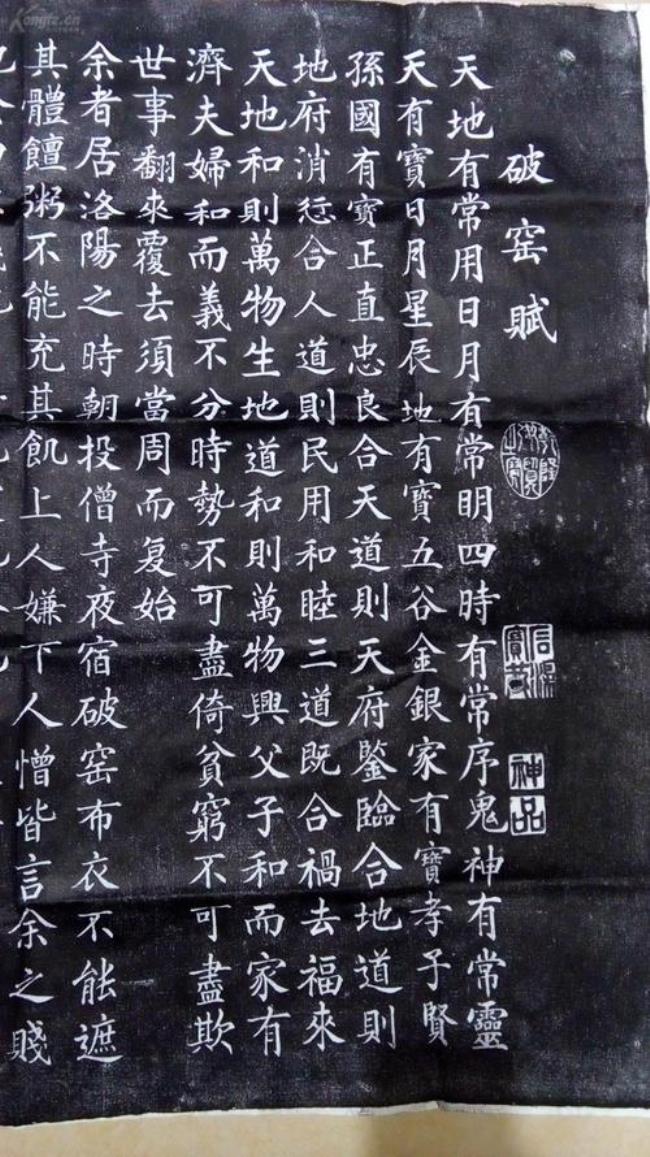 破窑賦
天地有常用日月有常明四時有常序鬼神有常靈
天有寶日月星辰地有寶五谷金銀家有寶孝子賢
孫國有寶正直忠良合天道則天府鑒臨合地道則
地府消愆合人道則民用和睦三道既合禍去福來
天地和則萬物生地道和則萬物興父子和而家有
濟夫婦和而義不分時勢不可盡倚貧窮不可盡欺
世事翻來覆去須當周而复始
余者居洛陽之時朝投僧寺夜宿破窑布衣不能遮
其體饘粥不能充其飢上人嫌下人憎皆言余之賤
神品
Kongfz.cn